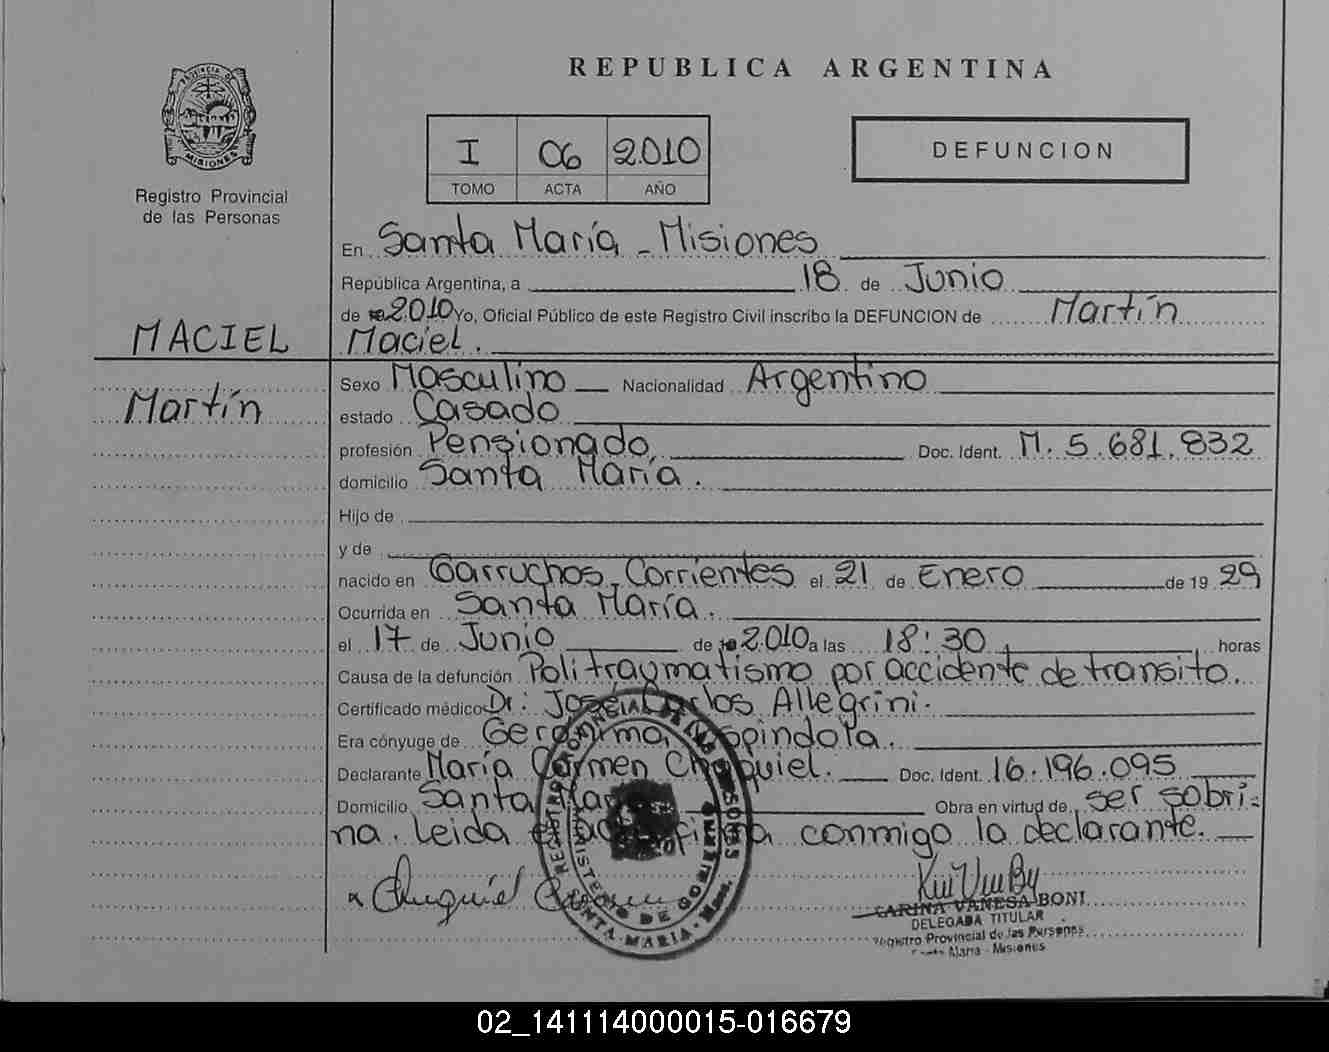 REPUBLICA ARGENTINA
PROVINCIA DE MISIONES
Registro Provincial
de las Personas
I 06 2010
TOMO ACTA AÑO
DEFUNCION
En Santa María - Misiones
República Argentina, a 18 de Junio
de 2010 Yo, Oficial Público de este Registro Civil inscribo la DEFUNCION de Martín
MACIEL
Maciel.
Martín
Sexo Masculino Nacionalidad Argentino
estado Casado
profesión Pensionado, Doc. Ident. M. 5.681.832
domicilio Santa María.
Hijo de
y de
nacido en Garruchos, Corrientes el 21 de Enero de 19 29
Ocurrida en Santa María.
el 17 de Junio de 2010 a las 18:30 horas
Causa de la defunción Politraumatismo por accidente de transito.
Certificado médico Dr: José Carlos Allegrini.
Era cónyuge de Gerónima Espindola.
Declarante María Carmen Chequiel. Doc. Ident. 16.196.095
Domicilio Santa María Obra en virtud de ser sobri-
na. Leida el acta firma conmigo la declarante.
REGISTRO PROVINCIAL DE LAS PERSONAS
MINISTERIO DE GOBIERNO
SANTA MARIA - Mnes.
CARINA VANESA BONI
DELEGADA TITULAR
Registro Provincial de las Personas
Santa María - Misiones
02_141114000015-016679